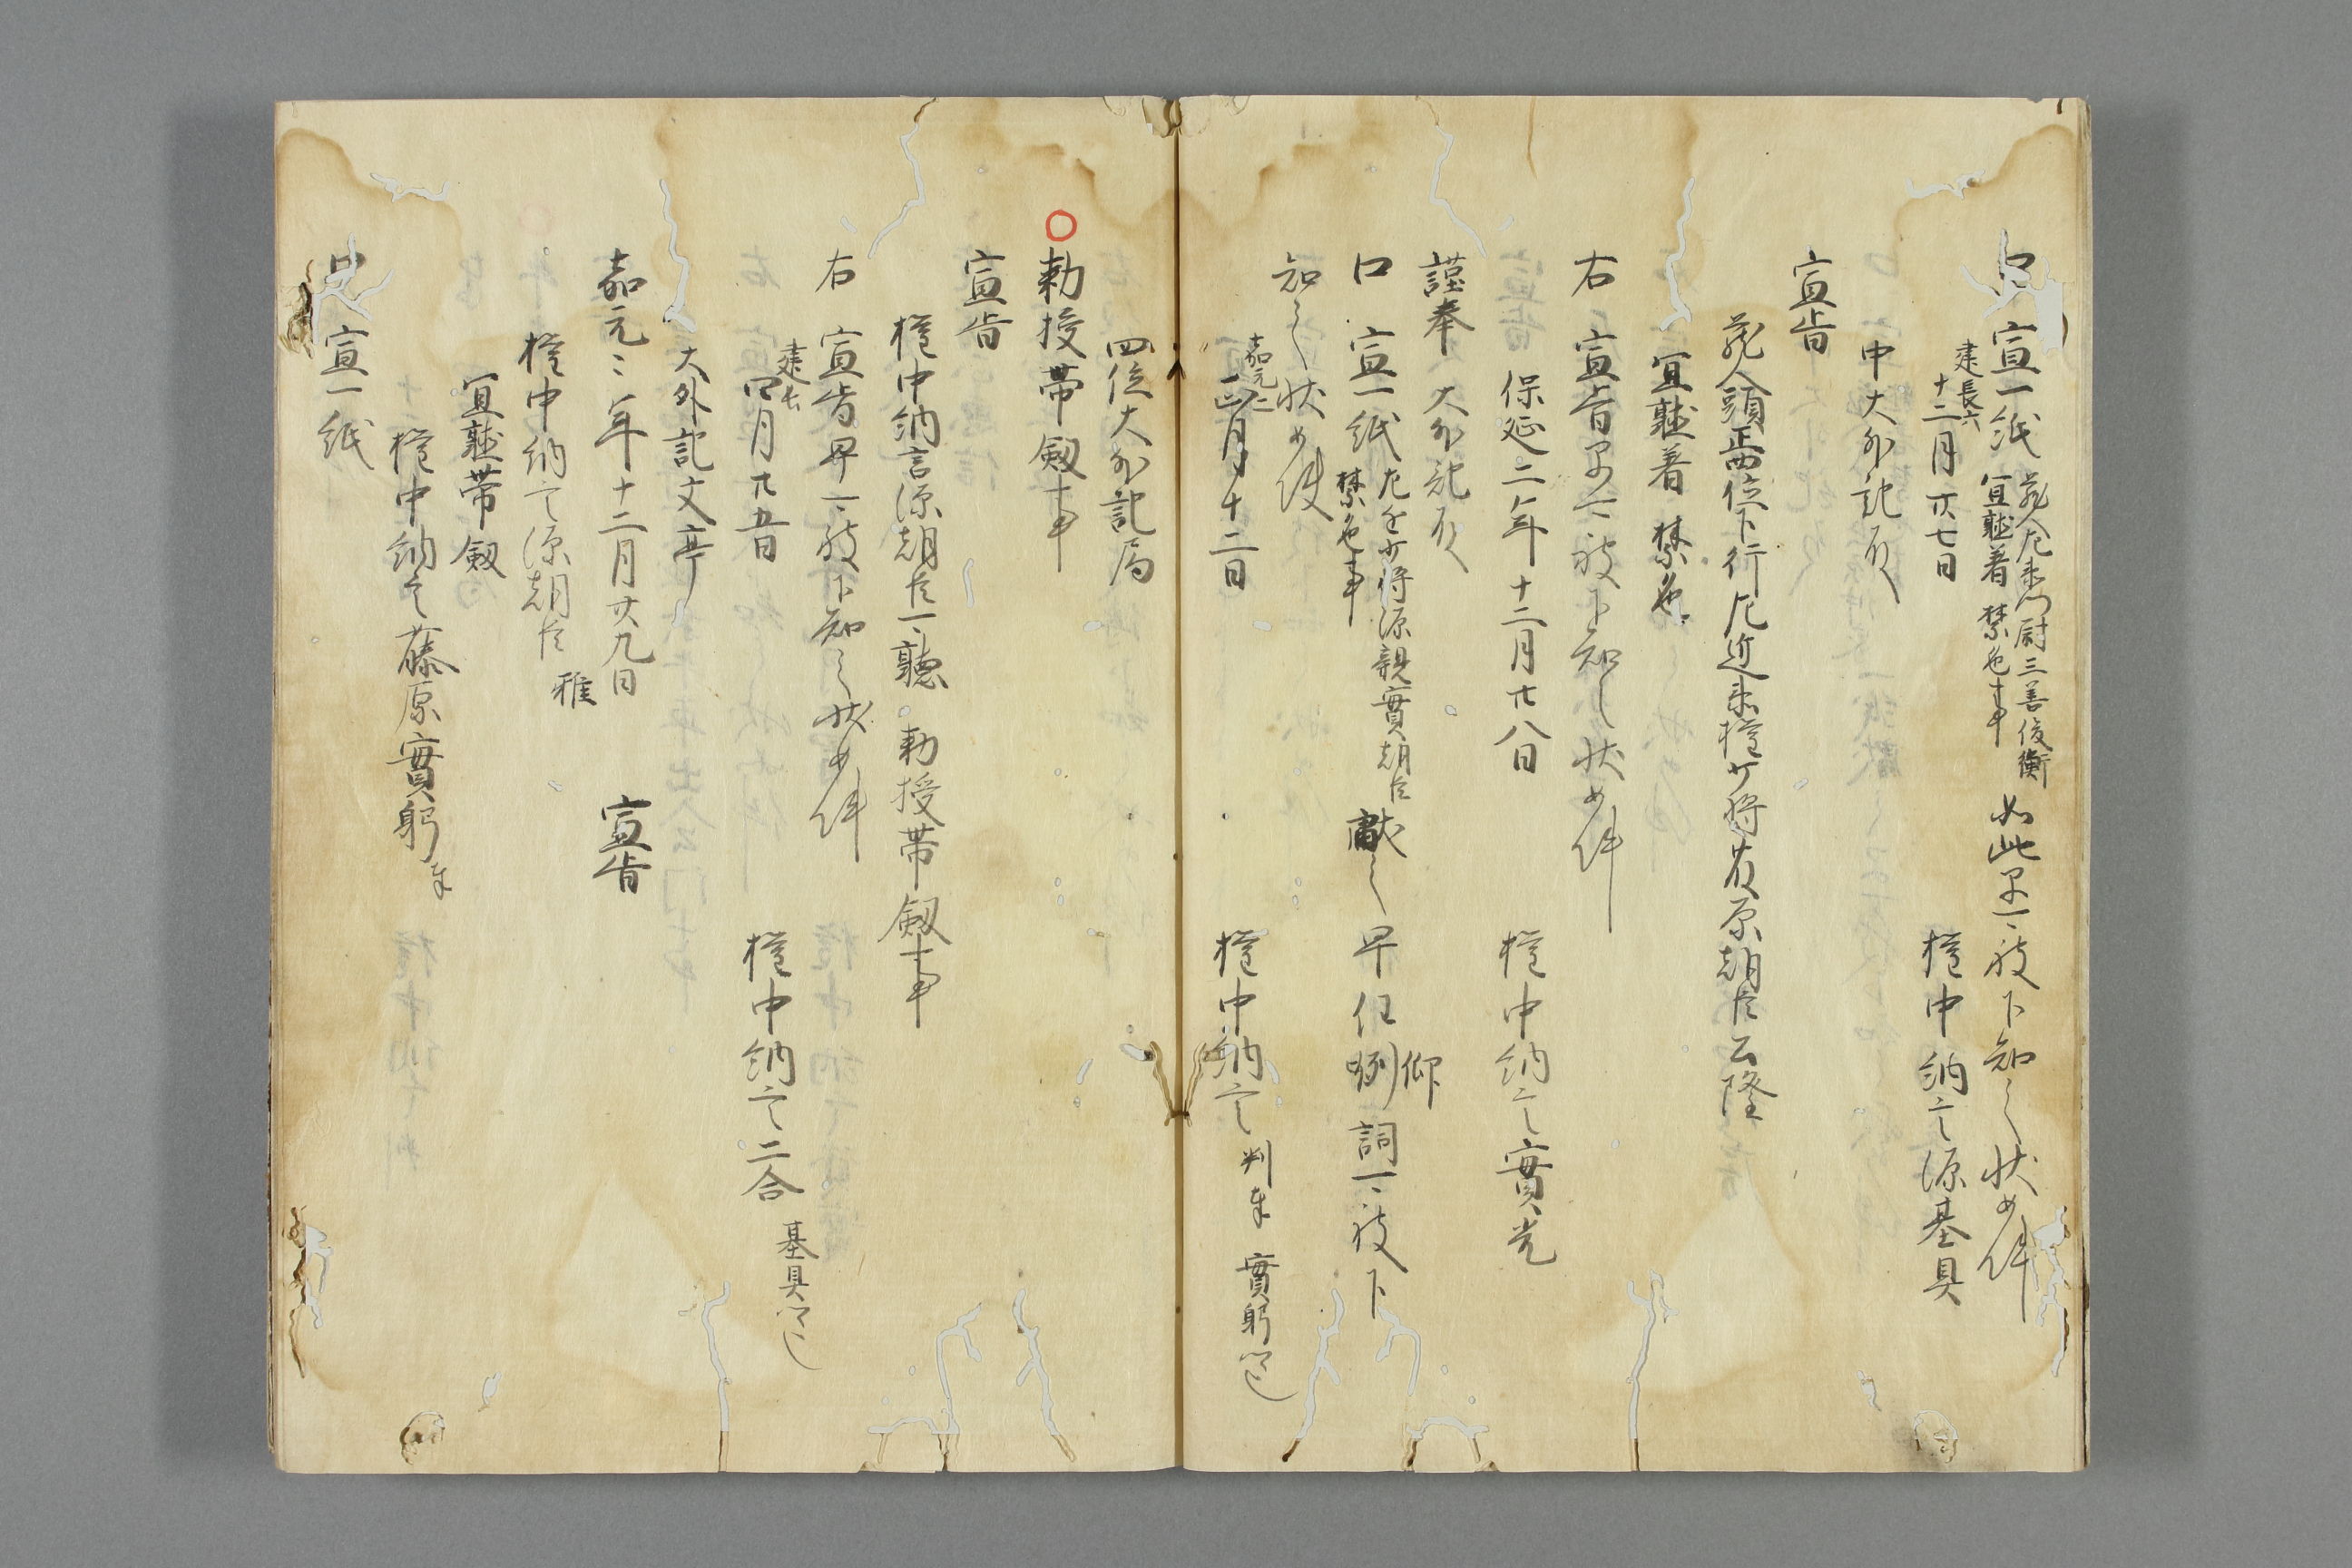 口 宣一紙 蔵人左衛門尉三善俊衡
宜聴着 禁色事 如此早可被下知之状如件
建長六
十二月廿七日 権中納言源基具
中大外記殿
宣旨
蔵人頭正四位下行左近衛権少将藤原朝臣公隆
宜聴着 禁色
右 宣旨早可被下知之状如件
保延二年十二月廿八日 権中納言實光
謹奉 大外記殿
口 宣一紙 左近少将源親實朝臣
禁色事 献之 早任例 仰詞可被下
知之状如件
嘉元二
月十二日 権中納言 判奉 實躬
四位大外記局
勅授帯剱事
宣旨
権中納言源朝臣可聴 勅授帯剱事
右 宣旨早可被下知之状如件
建長
四月廿五日 権中納言二合 基具
大外記文亭
嘉元二年十二月廿九日 宣旨
権中納言源朝臣 雅
宜聴帯剱
権中納言藤原實躬奉
口 宣一紙